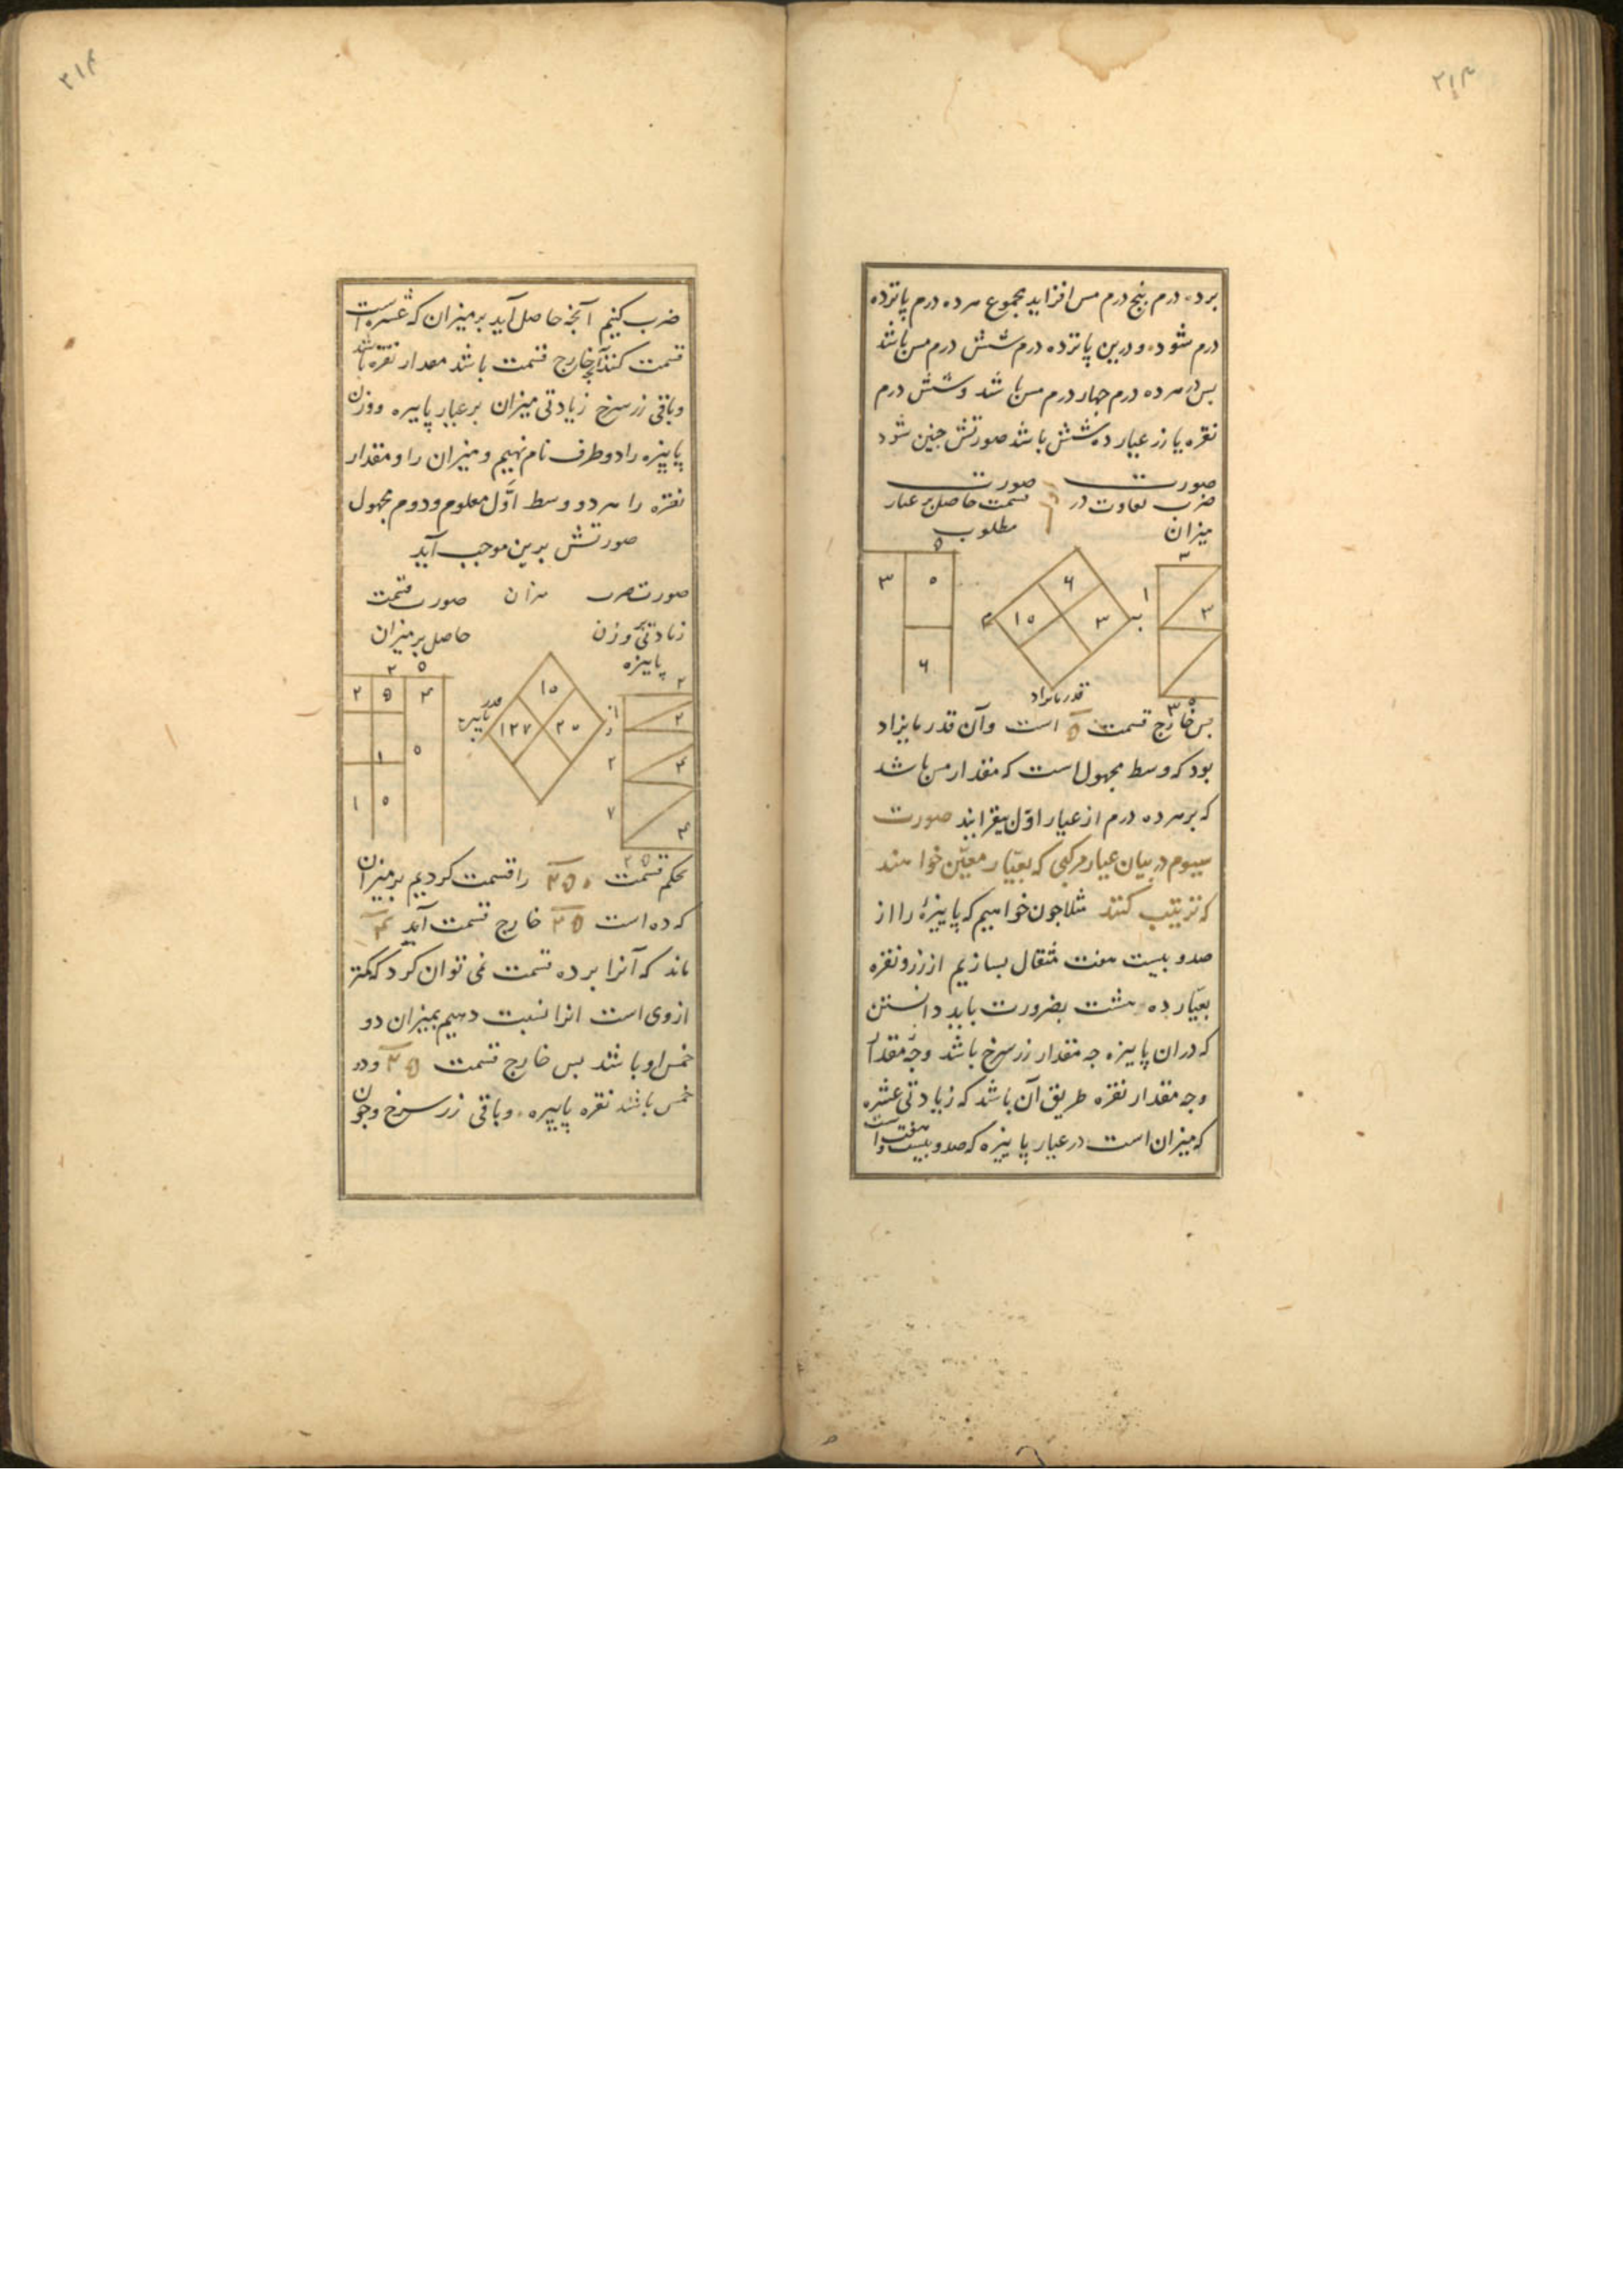 ۲۱۴
برده درم پنج درم مس افزاید مجموع هر ده درم پانزده
درم شود و درین پانزده درم شش درم مس باشد
بس در هر ده درم چهار درم مس باشد و شش درم
نقره یا زر عیار ده شش باشد صورتش چنین شود
صورت صورت
ضرب تفاوت در قسمت حاصل بر عیار
میزان مطلوب
۵
۳ ۵
۶
۶
۱۵ ۳
۳
۱ ۳
قدر مایزاد
بس خارج قسمت ۵ است و آن قدر مایزاد
بود که وسط مجهول است که مقدار مس باشد
که بر هر ده درم از عیار اوّل بیفزایند صورت
سیوم در بیان عیار مرکبی که بعیّار معیّن خواهند
که ترتیب کنند مثلا جون خواهیم که پاییزهٔ را از
صد و بیست هفت مثقال بسازیم از زر و نقره
بعیّار ده هشت بضرورت باید دانستن
که دران پاییزه جه مقدار زر سرخ باشد وجه مقدار
وجه مقدار نقره طریق آن باشد که زیادتی عشره
که میزان است در عیار پاییزه که صد و بیست و هفت است
۲۱۴
ضرب کنیم آنجه حاصل آید بر میزان که عشره است
قسمت کنند آنجه خارج قسمت باشد مقدار نقره باشد
و باقی زر سرخ زیادتی میزان بر عیار پاییزه و وزن
پاییزه را دو طرف نام نهیم و میزان را و مقدار
نقره را هر دو وسط اوّل معلوم و دوم مجهول
صورتش برین موجب آید
صورت ضرب میزان صورت قسمت
زیادتی و وزن حاصل بر میزان
پاییزه
۲ ۵
۲ ۵ ۴
۵
۱ ۵
۱۵
۱۲۷ ۲۵
۲
۱ ۲
۲ ۴
۷
بحکم قسمت ۲۵۰ را قسمت کردیم بر میزان
که ده است ۲۵ خارج قسمت آید ۴
ماند که آنرا بر ده قسمت نمی توان کرد که کمتر
ازوی است انرا نسبت دهیم بمیزان دو
خمس او باشد بس خارج قسمت ۲۵ و دو
خمس باشد نقره پاییزه و باقی زر سرخ وجون